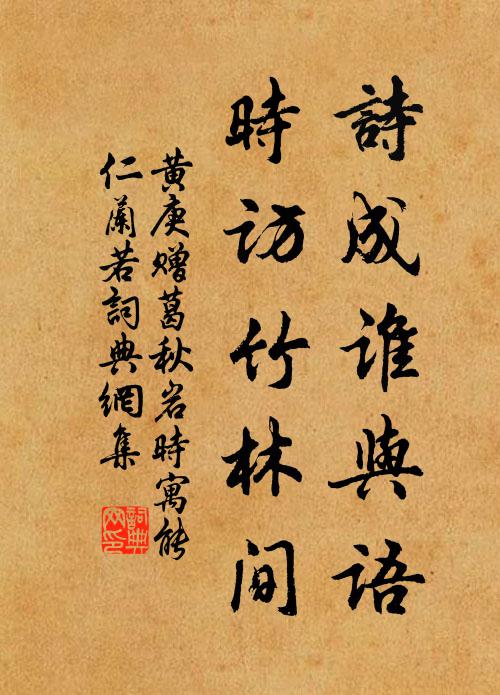 詩成誰與語
時访竹林间
黄庚赠葛秋岩時寓能
仁蘭若詞典網集
詞典